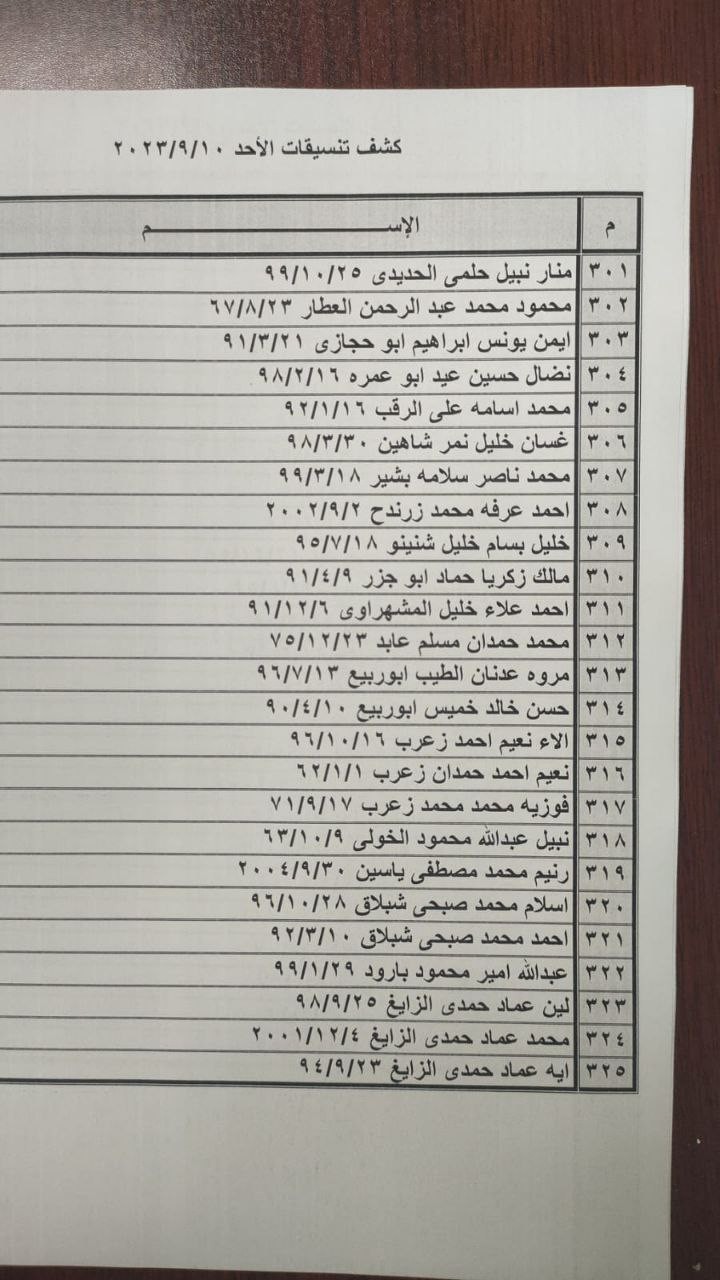 كشف تنسيقات الأحد ٢٠٢٣/٩/١٠
م الإســـــــــــــــــــــــم
٣٠١ منار نبيل حلمى الحديدى ٩٩/١٠/٢٥
٣٠٢ محمود محمد عبد الرحمن العطار ٦٧/٨/٢٣
٣٠٣ ايمن يونس ابراهيم ابو حجازى ٩١/٣/٢١
٣٠٤ نضال حسين عيد ابو عمره ٩٨/٢/١٦
٣٠٥ محمد اسامه على الرقب ٩٢/١/١٦
٣٠٦ غسان خليل نمر شاهين ٩٨/٣/٣٠
٣٠٧ محمد ناصر سلامه بشير ٩٩/٣/١٨
٣٠٨ احمد عرفه محمد زرندح ٢٠٠٢/٩/٢
٣٠٩ خليل بسام خليل شنينو ٩٥/٧/١٨
٣١٠ مالك زكريا حماد ابو جزر ٩١/٤/٩
٣١١ احمد علاء خليل المشهراوى ٩١/١٢/٦
٣١٢ محمد حمدان مسلم عابد ٧٥/١٢/٢٣
٣١٣ مروه عدنان الطيب ابوربيع ٩٦/٧/١٣
٣١٤ حسن خالد خميس ابوربيع ٩٠/٤/١٠
٣١٥ الاء نعيم احمد زعرب ٩٦/١٠/١٦
٣١٦ نعيم احمد حمدان زعرب ٦٢/١/١
٣١٧ فوزيه محمد محمد زعرب ٧١/٩/١٧
٣١٨ نبيل عبدالله محمود الخولى ٦٣/١٠/٩
٣١٩ رنيم محمد مصطفى ياسين ٢٠٠٤/٩/٣٠
٣٢٠ اسلام محمد صبحى شبلاق ٩٦/١٠/٢٨
٣٢١ احمد محمد صبحى شبلاق ٩٢/٣/١٠
٣٢٢ عبدالله امير محمود بارود ٩٩/١/٢٩
٣٢٣ لين عماد حمدى الزايغ ٩٨/٩/٢٥
٣٢٤ محمد عماد حمدى الزايغ ٢٠٠١/١٢/٤
٣٢٥ ايه عماد حمدى الزايغ ٩٤/٩/٢٣